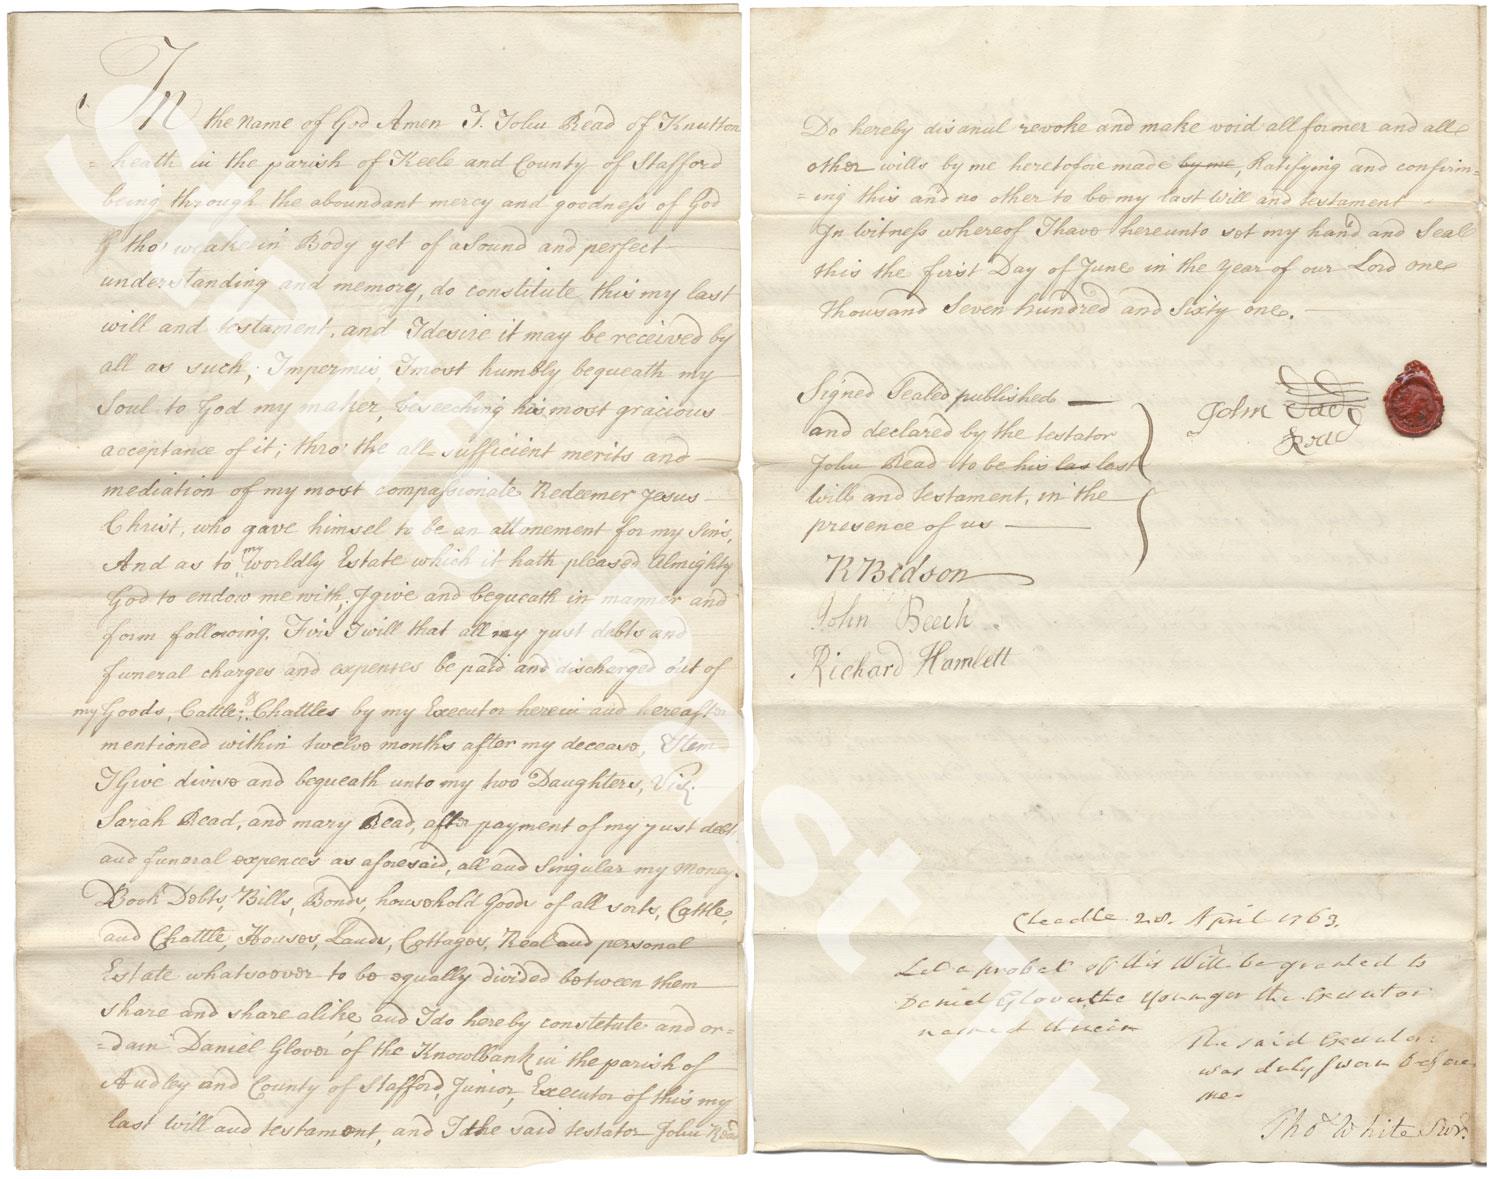 In
the name of God Amen I. John Read of Knutton
= heath in the parish of Keele and County of Stafford
being through the aboundant mercy and goodness of God
tho' weake in Body yet of a Sound and perfect
understanding and memory, do constitute this my last
will and testament, and I desire it may be received by
all as such; Impermis, I most humbly bequeath my
Soul to God my maker, beseeching his most gracious
acceptance of it; thro' the all=sufficient merits and
mediation of my most compassionate Redeemer Jesus
Christ, who gave himself to be an attonement for my Sins,
And as to my worldly Estate which it hath pleased Almighty
God to endow me with, I give and bequeath in manner and
form following. Firs I will that all my just debts and
funeral charges and expences be paid and discharged out of
my Goods, Cattle, & Chattles by my Executor herein and hereafter
mentioned within twelve months after my decease, Item
I Give divise and bequeath unto my two Daughters, Viz.
Sarah Read, and mary Read, after payment of my just debt
and funeral expences as aforesaid, all and Singular my Money,
Book Debts, Bills, Bonds, household Goods of all sorts, Cattle,
and Chattle, Houses, Lands, Cottages, Real and personal
Estate whatsoever to be equally divided between them
share and share alike and I do hereby constetute and or=
=dain Daniel Glover of the Knowlbank in the parish of
Audley and County of Stafford, Junior, Executor of this my
last will and testament, and I the said testator John Read
Do hereby disanul revoke and make void all former and all
other wills by me heretofore made by me, Ratifying and confirm=
=ing this and no other to be my last will and testament
In witness whereof I have hereunto set my hand and Seal
this the first Day of June in the year of our Lord one
thousand Seven hundred and Sixty one.
Signed Sealed published
and declared by the testator
John Read to be his las last
will and testament, in the
presence of us
John
Read
R Bedson
John Beech
Richard Hamlett
Cheadle 28. April 1763.
Let a probat of this Will be granted to
Daniel Glover the Younger the Executor
named therein
The said Executor
was duly sworn before
me.
Tho.s White Surr.
Steps Past T